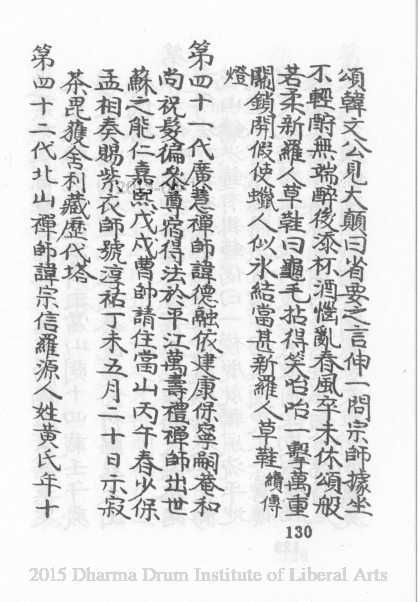 頌韓文公見大顛曰省要之言伸一問宗師據坐
不輕酧無端醉後添杯酒惱亂春風卒未休頌般
若柔新羅人草鞋曰龜毛拈得笑咍咍一擊萬重
關鎖開假使蠟人似氷結當甚新羅人草鞋續傳
燈
第四十一代廣意禪師諱德融依建康保寧嗣菴和
尚祝髮偏叅尊宿得法於平江萬壽禮禪師出世
蘇之能仁嘉熙戊戌曹帥請住當山丙午春少保
孟相奏賜紫衣師號淳祐丁未五月二十日示寂
茶毘獲舍利藏歷代塔
第四十二代北山禪師諱宗信羅源人姓黃氏年十
130
2015 Dharma Drum Institute of Liberal Arts